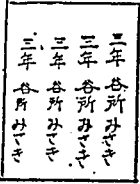 三年 谷所 みざき
三年 谷所 みざき
三年 谷所 みざき
三年 谷所 みざき